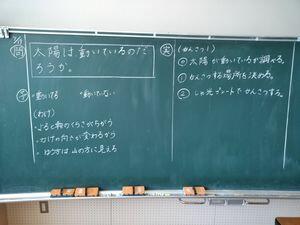 問
太陽は動いているのだ
ろうか。
予 ・動いてる ・動いてない
(わけ)
・よると朝のくらさがちがう
・かげの向きが変わるから
・ゆう方は山の方に見える
実 (かんさつ1)
太陽が動いているか調べる。
① かんさつする場所を決める。
② しゃ光プレートでかんさつする。